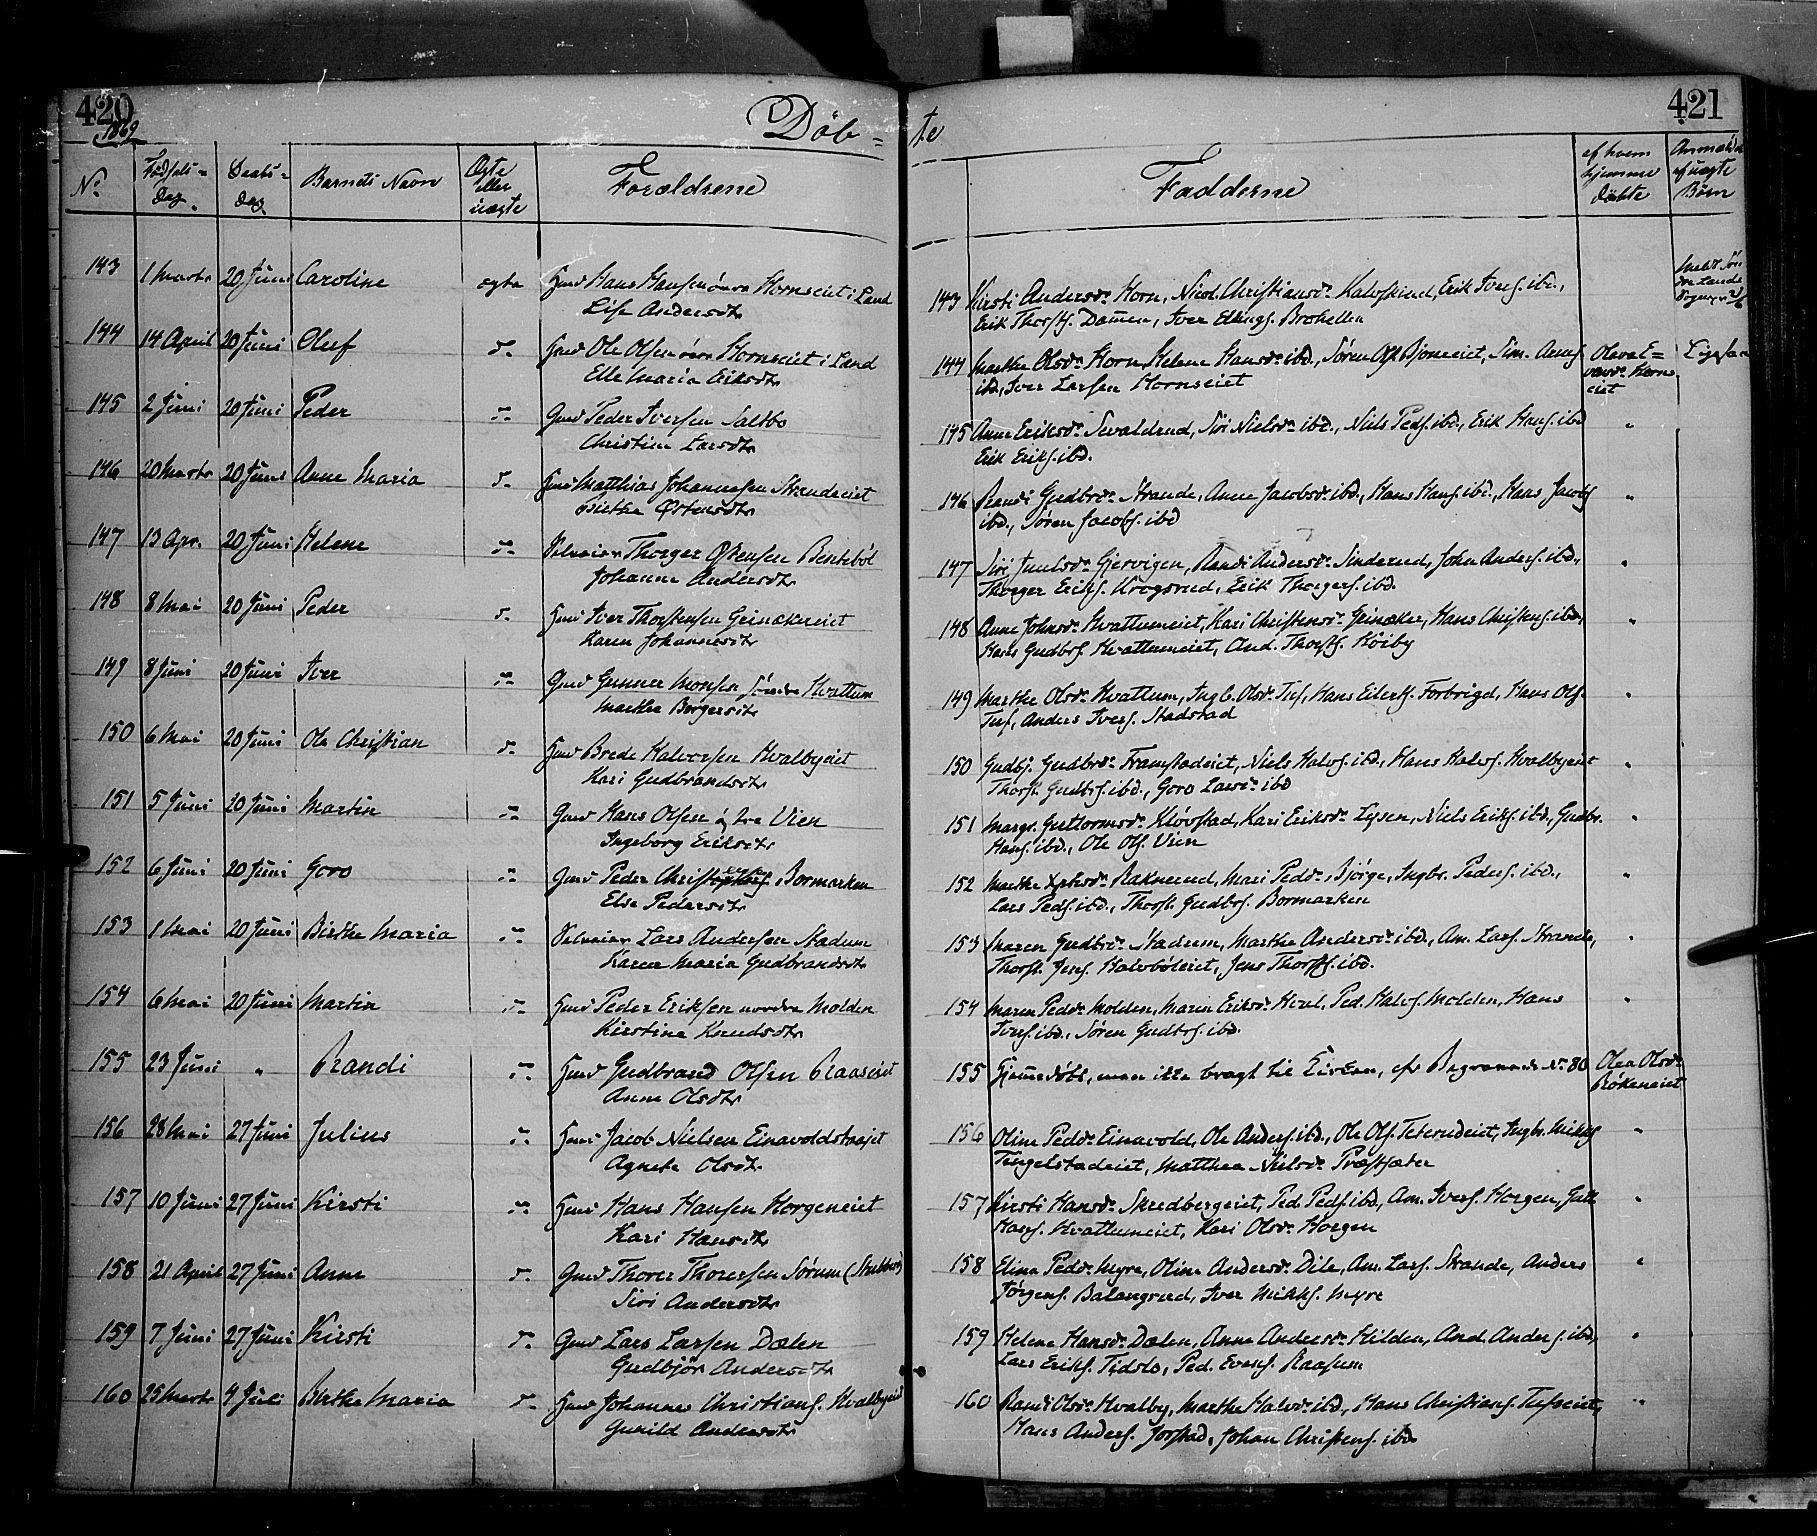 420
421
1869
Døb=
te
No
Fødsels=
Dag.
Daabs=
Dag.
Barnets Navn
Ægte
eller
uægte
Forældrene
Fadderne
af hvem
hjemme
døbte
Anmeld
af uægte
Børn
143 1 Marts 20 Juni Caroline ægte Huusm Hans Hansen øvre Hornseiet i Land
Lise Andersdtr
144 14 April 20 Juni Oluf Do Huusm Ole Olsen øvre Hornseiet i Land
Elli Maria Eriksdtr
145 2 Juni 20 Juni Peder Gmd Peder Iversen Saltbo
Christine Larsdtr
146 20 Marts 20 Juni Anne Maria Matthias Johannesen Strandeiet
Birthe Østensdtr
147 13 Apr. 20 Juni Helene Thorger Østensen Bentebøl
Johanne Andersdtr
148 8 Mai 20 Juni Peder Iver Thorstensen Grinakereiet
Karen Johannesdtr
149 8 Juni 20 Juni Iver Gmd Gunner Monsen søndre Hvattum
Marthe Borgersdtr
150 6 Mai 20 Juni Ole Christian Brede Halvorsen Hvalbyeiet
Kari Gudbrandsdtr
151 5 Juni 20 Juni Martin Gmd Hans Olsen øvre Vien
Ingeborg Eriksdtr
152 6 Juni 20 Juni Goro Gmd Peder Bormarken
Else Pedersdtr
153 1 Mai 20 Juni Birthe Maria Lars Andersen Stadum
Karen Maria Gudbrandsdtr
154 6 Mai 20 Juni Martin Peder Eriksen nordre Molden
Kirstine Knudsdtr
155 23 Juni " Randi Gudbrand Olsen Raaseiet
Anne Olsdtr
156 28 Mai 27 Juni Julius Jacob Nielsen
Agnete Olsdtr
157 10 Juni 27 Juni Kirsti Hans Hansen Horgeneiet
Kari Hansdtr
158 21 April 27 Juni Anne Gmd Thorer Thoresen Sørum
Siri Andersdtr
159 7 Juni 27 Juni Kirsti Gmd Lars Larsen Dælen
Gudbjør Andersdtr
160 25 Marts 4 Juli Birthe Maria Johannes Christians. Hvalbyeiet
Gunild Andersdtr
143 Kirsti Andersdr Horn, Nicol. Christiansdr Kalvskind, Erik Ivers. ibd.,
Erik Thorsts. Damen, Iver Ellings. Brohellen
144 Marthe Olsdr Horn, Helene Hansdr ibd, Søren Ols. Bjorneiet, Sim. Arnes.
ibd., Iver Larsen Hornseiet
145 Anne Eriksdr Sevaldrud, Siri Nielsdr ibd., Niels Peds. ibd., Erik Hans. ibd
Erik Eriks. ibd.
146 Randi Gudbrdr Strande, Anne Jacobsdr ibd., Hans Hans. ibd., Hans Jacobs
ibd., Søren Jacobs. ibd
147 Siri Juulsdr Gjervigen, Randi Andersdr Sinderud, John Anders. ibd.,
Thorger Eriks. Krogsrud, Erik Thorgers. ibd.
148 Anne Johnsdr Hvattumeiet, Kari Christensdr Grinaker, Hans Christens. ibd.,
Hans Gudbrs. Hvattumeiet, And. Thorsts. Høiby
149 Marthe Olsdr Hvattum, Ingb. Olsdr Tuf, Hans Eilerts. Forbrigd, Hans Ols.
Tuf, Anders Ivers. Stadstad
150 Gudbj. Gudbrdr Framstadeiet, Niels Halvs. ibd., Hans Halvs. Hvalbyeiet
Thorst. Gudbrs. ibd., Goro Larsdr ibd
151 Margr. Guttormsdr Kløvstad, Kari Eriksdr Lysen, Niels Eriks. ibd., Gudbr.
Hans. ibd., Ole Ols. Vien
152 Marthe Raknerud, Mari Peddr Bjørge, Ingbr. Peders. ibd.,
Lars Peds. ibd., Thorst. Gudbrs. Bormarken
153 Maren Gudbrdr Stadum, Marthe Andersdr ibd., Am. Lars. Strande,
Thorst. Jens. Halvbøleiet, Jens Thorsts. ibd.
154 Maren Peddr Molden, Maren Eriksdr Hvel, Ped. Halvs. Molden, Hans
Ivers. ibd., Søren Gudbrs. ibd.
155 Hjemmedøbt, men ikke bragt til Kirken, cfr Begravede No 80
156 Oline Peddr Einavold, Ole Anders. ibd., Ole Ols. Teterudeiet, Ingbr. Mikks
Tingelstadeiet, Matthea Nielsdr Præstsæter
157 Kirsti Hansdr Skredbergeiet, Ped. Peds. ibd., Am. Ivers. Horgen, Gulb.
Hans. Hvattumeiet, Kari Olsdr Horgen
158 Eline Peddr Myre, Oline Andersdr Dile, Am. Lars. Strande, Anders
Jørgens. Balangrud, Iver Mikks. Myre
159 Helene Hansdr Dælen, Anne Andersdr Hilden, And. Anders. ibd,
Lars Eriks. Tidslo, Ped. Evens. Raasum
160 Randi Olsdr Hvalby, Marthe Halvdr ibd., Hans Christians. Tufseiet,
Hans Anders. Jorstad, Johan Christens. ibd.
Olava E=
vensdr Horns
eiet
Olea Olsdr
Røkeneiet